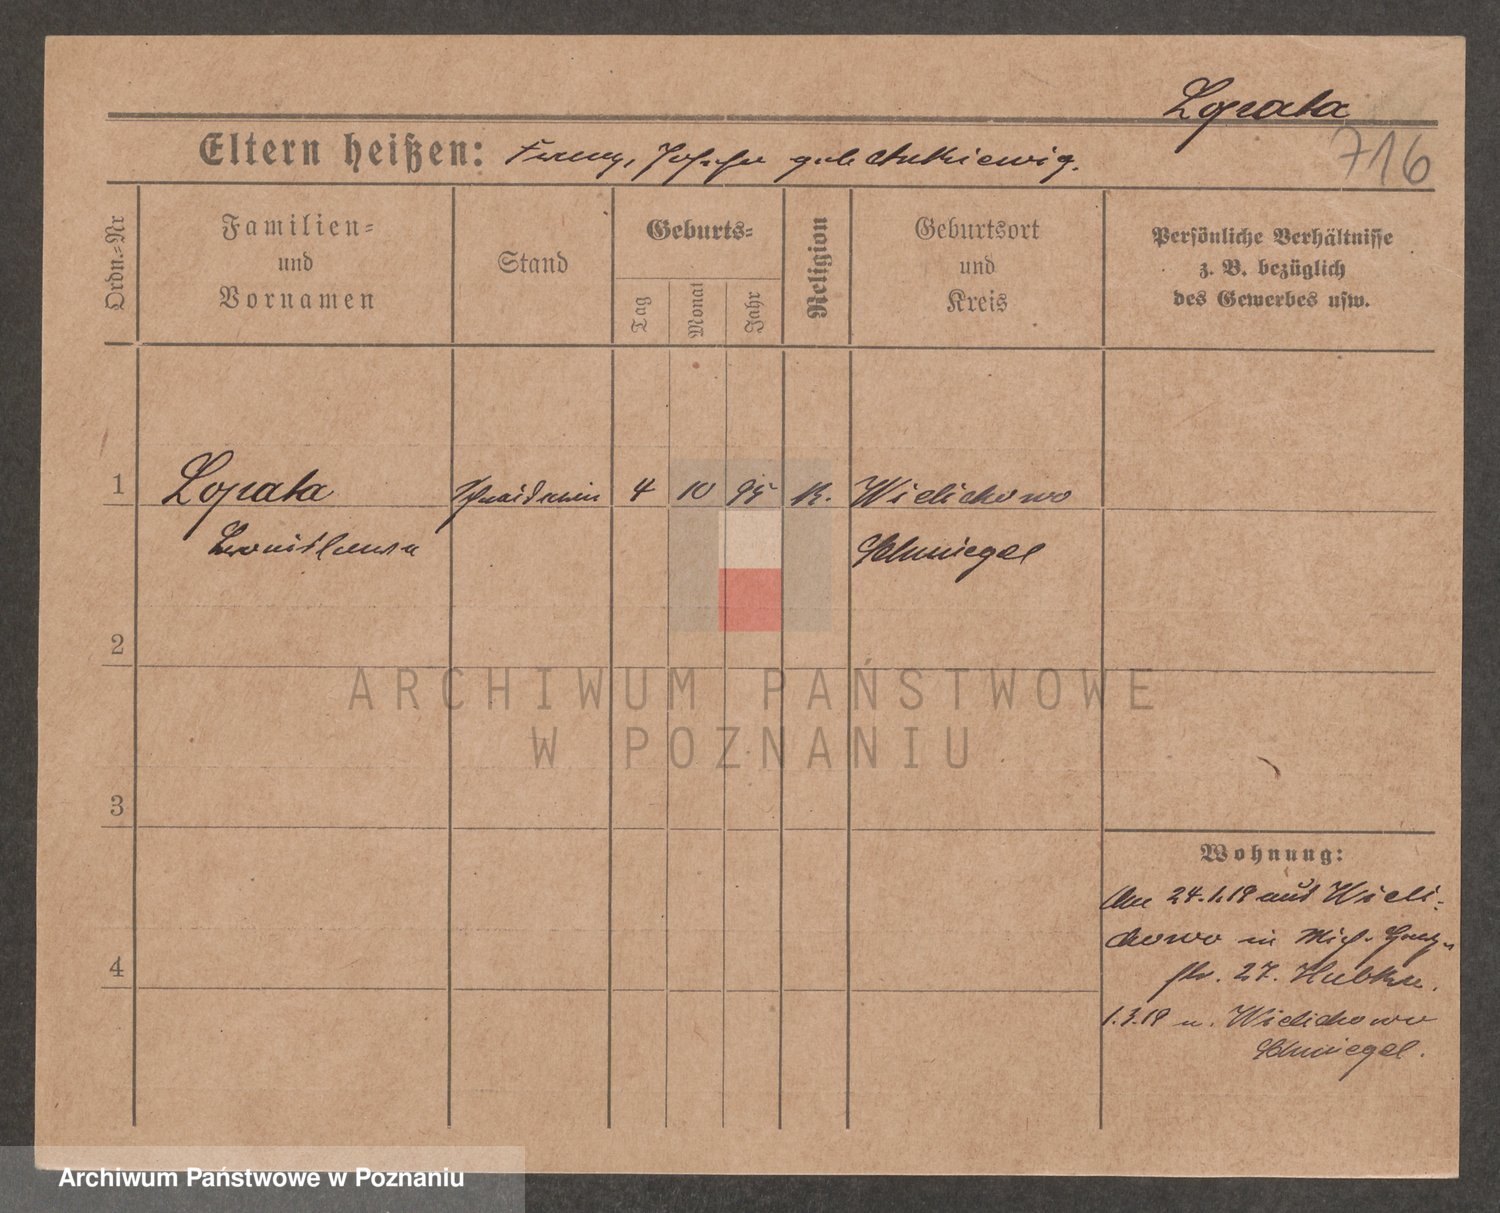 Lopata
716
Eltern heißen: Franz, Josefa geb. Antkiewig.
Ordn.-Nr
Familien-
und
Vornamen
Stand
Geburts-
Tag
Monat
Jahr
Religion
Geburtsort
und
Kreis
Persönliche Verhältnisse
z. B. bezüglich
des Gewerbes usw.
1 Lopata Schneiderin 4 10 95 K. Wielichowo
Schmiegel
2
3
4
Wohnung:
Am 24.1.19 aus Wieli-
chowo in
str. 27.
1.3.19 n. Wielichowo
Schmiegel.
ARCHIWUM PAŃSTWOWE
W POZNANIU
Archiwum Państwowe w Poznaniu